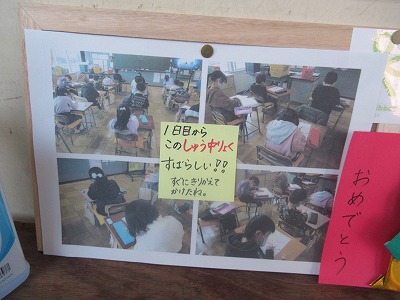 1日目から
このしゅう中りょく
すばらしい!!
すぐにきりかえて
かけたね。
おめでとう